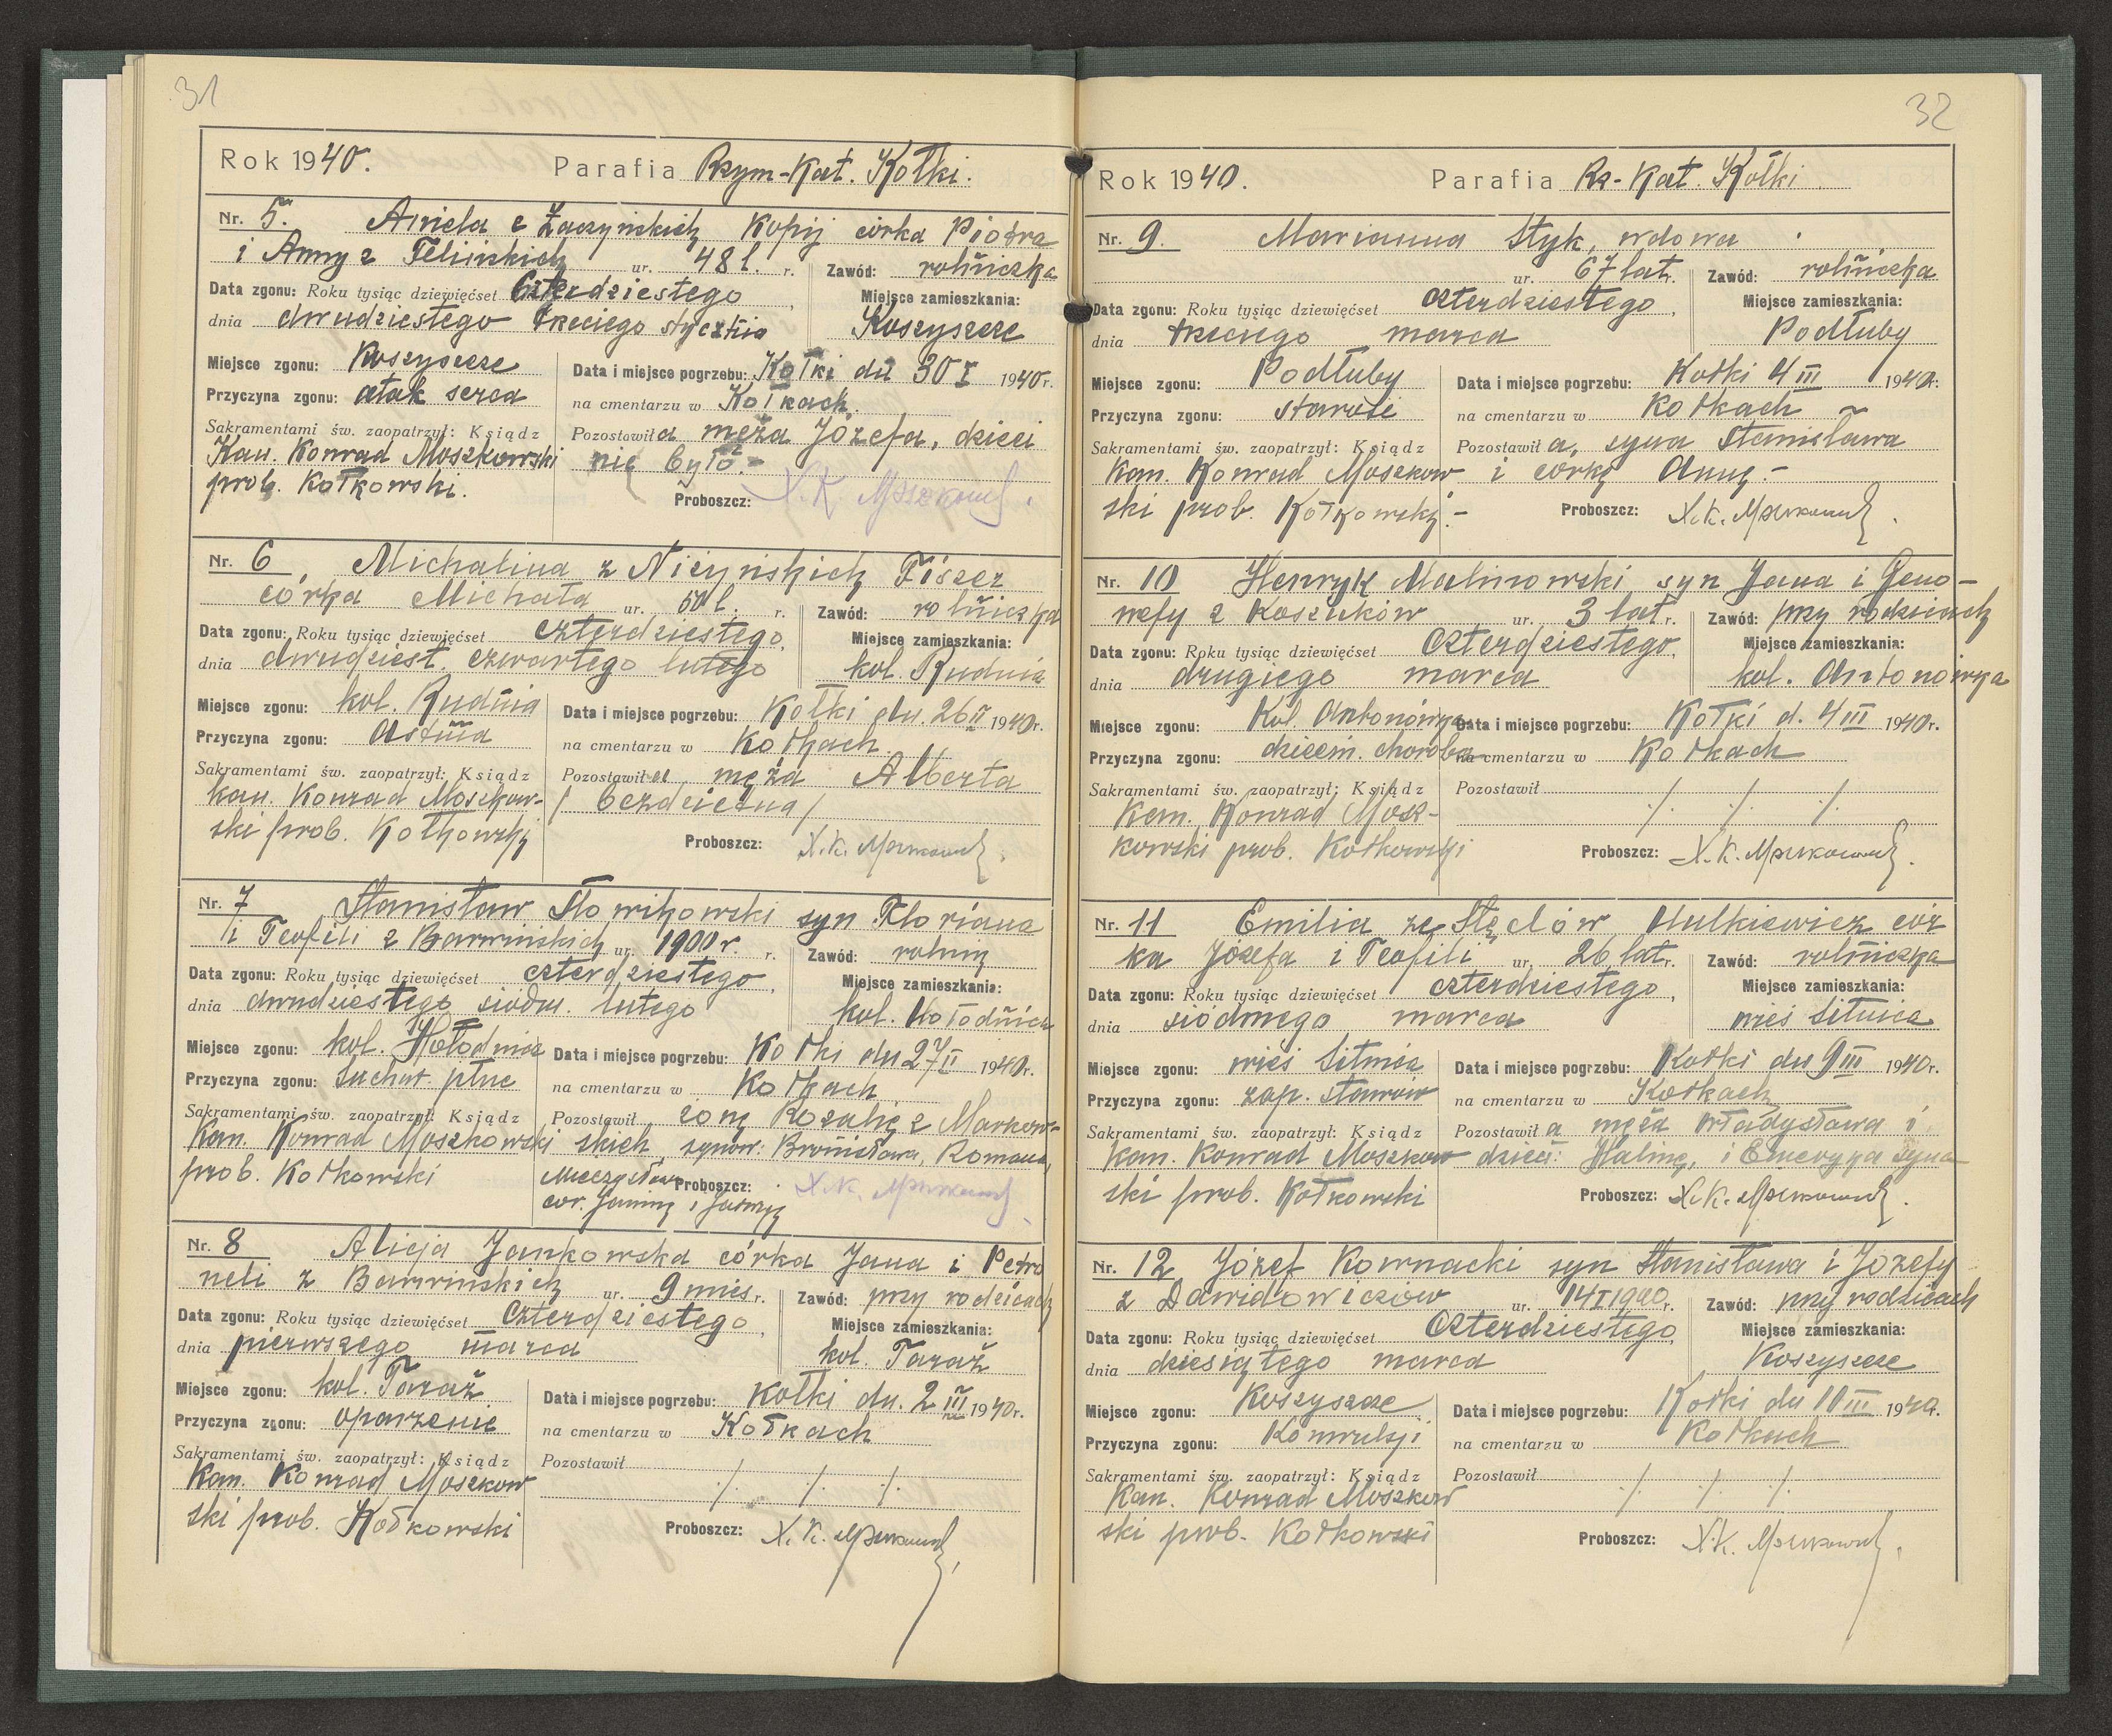 31
Rok 1940. Parafia Rzym-Kat. Kołki.
Nr. 5. Aniela z Łaczyńskich Kopij córka Piotra
i Anny z Felińskich ur. 48 l. r. Zawód: rolniczka
Data zgonu: Roku tysiąc dziewięćset czterdziestego, Miejsce zamieszkania:
dnia dwudziestego trzeciego stycznia Koszyszcze
Miejsce zgonu: Koszyszcze Data i miejsce pogrzebu: Kołki dn 30 I 1940 r.
Przyczyna zgonu: atak serca na cmentarzu w Kołkach.
Sakramentami św. zaopatrzył: Ksiądz Pozostawiła męża Józefa, dzieci
Kan. Konrad Moszkowski nie było.-
prob. Kołkowski. Proboszcz: X. K. Moszkowski.
Nr. 6 Michalina z Niżyńskich Fiszer
córka Michała ur. 50 l. r. Zawód: rolniczka
Data zgonu: Roku tysiąc dziewięćset czterdziestego, Miejsce zamieszkania:
dnia dwudziest. czwartego lutego kol. Rudnia
Miejsce zgonu: kol. Rudnia Data i miejsce pogrzebu: Kołki dn. 26 II 1940 r.
Przyczyna zgonu: astma na cmentarzu w Kołkach.
Sakramentami św. zaopatrzył: Ksiądz Pozostawiła męża Alberta
kan. Konrad Moszkow- / bezdzietna /
ski prob. Kołkowski Proboszcz: X. K. Moszkowski.
Nr. 7 Stanisław Słowikowski syn Floriana
i Teofili z Barwińskich ur. 1900 r. r. Zawód: rolnik
Data zgonu: Roku tysiąc dziewięćset czterdziestego, Miejsce zamieszkania:
dnia dwudziestego siódm. lutego kol. Hołodnica
Miejsce zgonu: kol. Hołodnica Data i miejsce pogrzebu: Kołki dn 27 II 1940 r.
Przyczyna zgonu: suchot. płuc na cmentarzu w Kołkach
Sakramentami św. zaopatrzył: Ksiądz Pozostawił żonę Rozalię z Markow-
Kan. Konrad Moszkowski skich, synów: Bronisława, Romana,
prob. Kołkowski Mieczysława Proboszcz: X. K. Moszkowski
cór. Janinę i
Nr. 8 Alicja Jankowska córka Jana i Petro
neli z Barwińskich ur. 9 mies. r. Zawód: przy rodzicach
Data zgonu: Roku tysiąc dziewięćset czterdziestego, Miejsce zamieszkania:
dnia pierwszego marca kol. Taraż
Miejsce zgonu: kol. Taraż Data i miejsce pogrzebu: Kołki dn. 2 III 1940 r.
Przyczyna zgonu: oparzenie na cmentarzu w Kołkach
Sakramentami św. zaopatrzył: Ksiądz Pozostawił
Kan. Konrad Moszkow ./. ./. ./.
ski prob. Kołkowski Proboszcz: X. K. Moszkowski
32
Rok 1940. Parafia Rz-Kat. Kołki.
Nr. 9. Marianna Styk, wdowa
ur. 67 lat r. Zawód: rolniczka
Data zgonu: Roku tysiąc dziewięćset czterdziestego, Miejsce zamieszkania:
dnia trzeciego marca Podłuby
Miejsce zgonu: Podłuby Data i miejsce pogrzebu: Kołki 4 III 1940 r.
Przyczyna zgonu: starość na cmentarzu w Kołkach
Sakramentami św. zaopatrzył: Ksiądz Pozostawiła, syna Stanisława
Kan. Konrad Moszkow i córkę Annę.-
ski prob. Kołkowski.- Proboszcz: X. K. Moszkowski.
Nr. 10 Henryk Malinowski syn Jana i Geno-
wefy z Koszuków ur. 3 lat r. Zawód: przy rodzicach
Data zgonu: Roku tysiąc dziewięćset czterdziestego, Miejsce zamieszkania:
dnia drugiego marca kol. Antonówka
Miejsce zgonu: Kol. Antonówka Data i miejsce pogrzebu: Kołki d. 4 III 1940 r.
Przyczyna zgonu: dziecin. choroba na cmentarzu w Kołkach
Sakramentami św. zaopatrzył: Ksiądz Pozostawił
Kan. Konrad Mosz- ./. ./. ./.
kowski prob. Kołkowski Proboszcz: X. K. Moszkowski.
Nr. 11 Emilia ze Stęclów Mulkiewicz cór
ka Józefa i Teofili ur. 26 lat r. Zawód: rolniczka
Data zgonu: Roku tysiąc dziewięćset czterdziestego, Miejsce zamieszkania:
dnia siódmego marca wieś Sitnica
Miejsce zgonu: wieś Sitnica Data i miejsce pogrzebu: Kołki dn 9 III 1940 r.
Przyczyna zgonu: zap. stawów na cmentarzu w Kołkach
Sakramentami św. zaopatrzył: Ksiądz Pozostawiła męża Władysława i
Kan. Konrad Moszkow dzieci: Halinę, i Emeryka syna
ski prob. Kołkowski Proboszcz: X. K. Moszkowski.
Nr. 12 Józef Kownacki syn Stanisława i Józefy
z Dawidowiczów ur. 14 I 1940 r. Zawód: przy rodzicach
Data zgonu: Roku tysiąc dziewięćset czterdziestego, Miejsce zamieszkania:
dnia dziesiątego marca Koszyszcze
Miejsce zgonu: Koszyszcze Data i miejsce pogrzebu: Kołki dn 10 III 1940 r.
Przyczyna zgonu: Konwulsji na cmentarzu w Kołkach
Sakramentami św. zaopatrzył: Ksiądz Pozostawił
Kan. Konrad Moszkow ./. ./. ./.
ski prob. Kołkowski Proboszcz: X. K. Moszkowski.